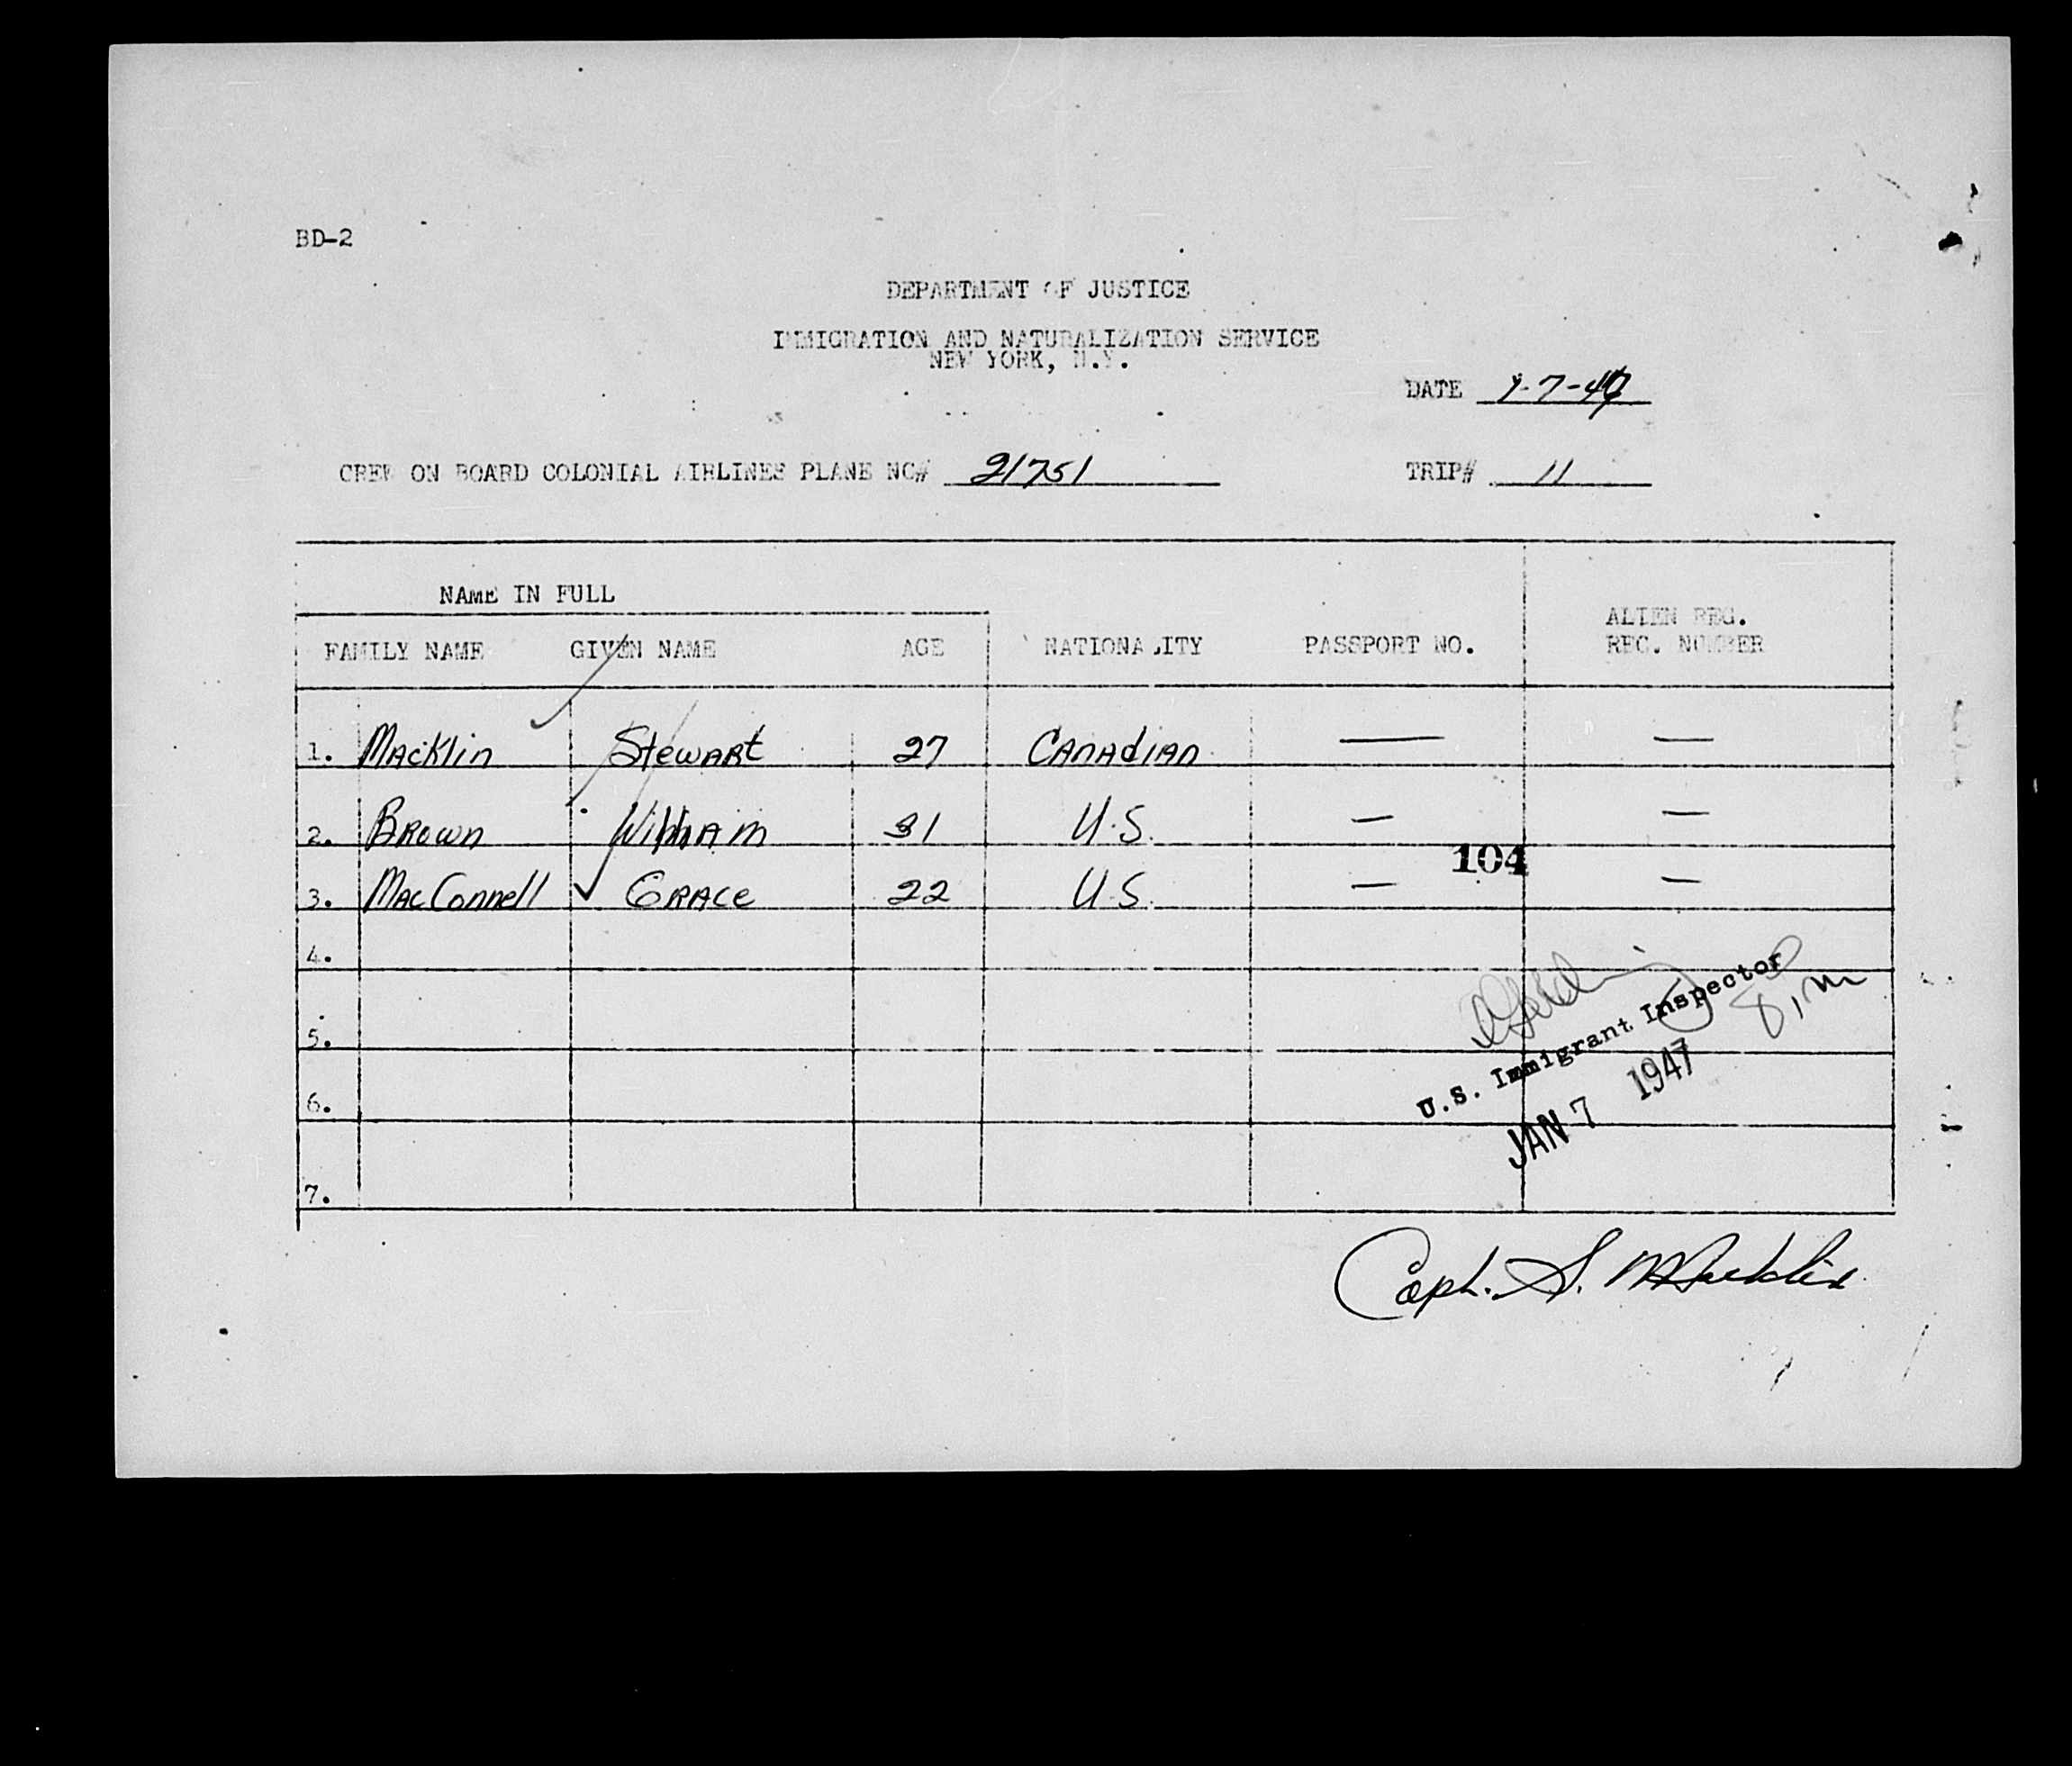 BD-2
DEPARTMENT OF JUSTICE
IMMIGRATION AND NATURALIZATION SERVICE
NEW YORK, N.Y.
DATE 1-7-47
CREW ON BOARD COLONIAL AIRLINES PLANE NC# 21751 TRIP# 11
NAME IN FULL
FAMILY NAME GIVEN NAME AGE NATIONALITY PASSPORT NO. ALIEN REG. REC. NUMBER
1. Macklin Stewart 27 Canadian — —
2. Brown William 31 U.S. — —
104
3. MacConnell Grace 22 U.S. — —
4.
5.
6.
7.
U.S. Immigrant Inspector
JAN 7 1947
Capt. S. Macklin